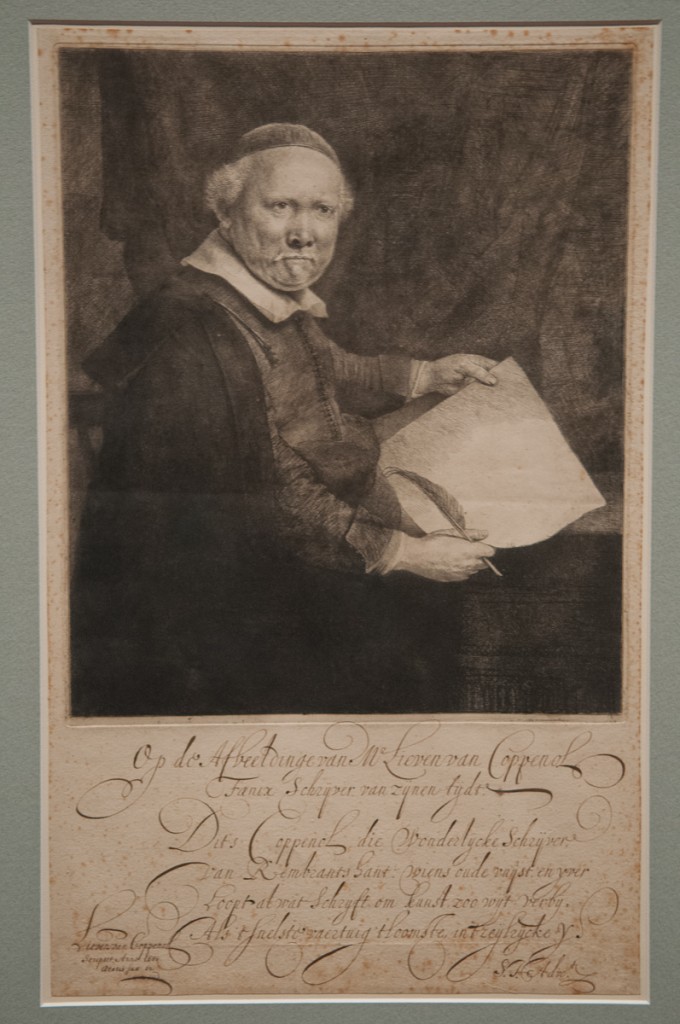 Op de Afbeeldinge van Mr Lieven van Coppenol
Fenix Schrijver van zijnen tijdt
Dit's Coppenol, die Wonderlijcke Schrijver,
van Rembrants hant: wiens oude vuijst en yver
Loopt al wat Schrijft om kunst zoo wijt verby,
Als 't snelste vaertuig 't loomste in 't reylrycke Y.
Lieven van Coppenol